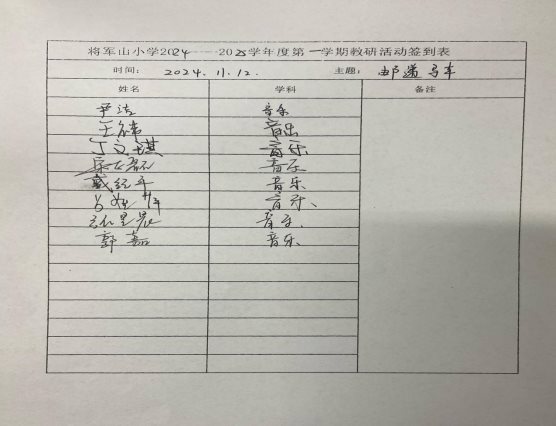 将军山小学2024——2025学年度第一学期教研活动签到表
时间： 2024. 11. 12. 主题： 邮递马车
姓名 学科 备注
尹洁 音乐
王 音乐
丁文琪 音乐
音乐
戴纪平 音乐
音乐、
音乐.
郭嘉 音乐